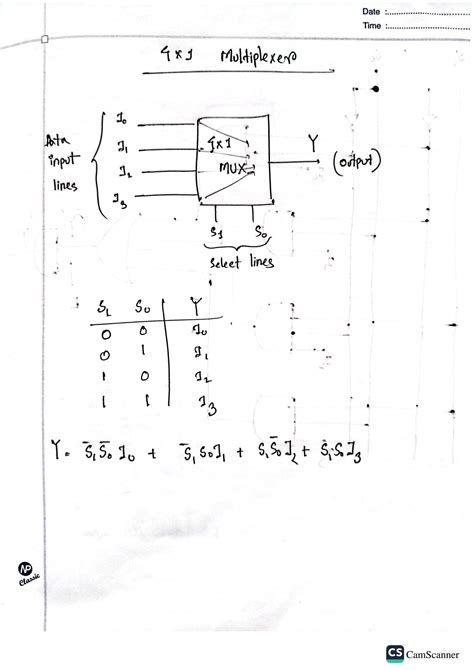 Date :
Time :
4x1 Multiplexer
Data input lines
I0
I1
I2
I3
4x1 MUX
Y (output)
S1 S0
Select lines
S1 S0 Y
0 0 I0
0 1 I1
1 0 I2
1 1 I3
Y = S̄1S̄0I0 + S̄1S0I1 + S1S̄0I2 + S1S0I3
NP
Classic
CS CamScanner